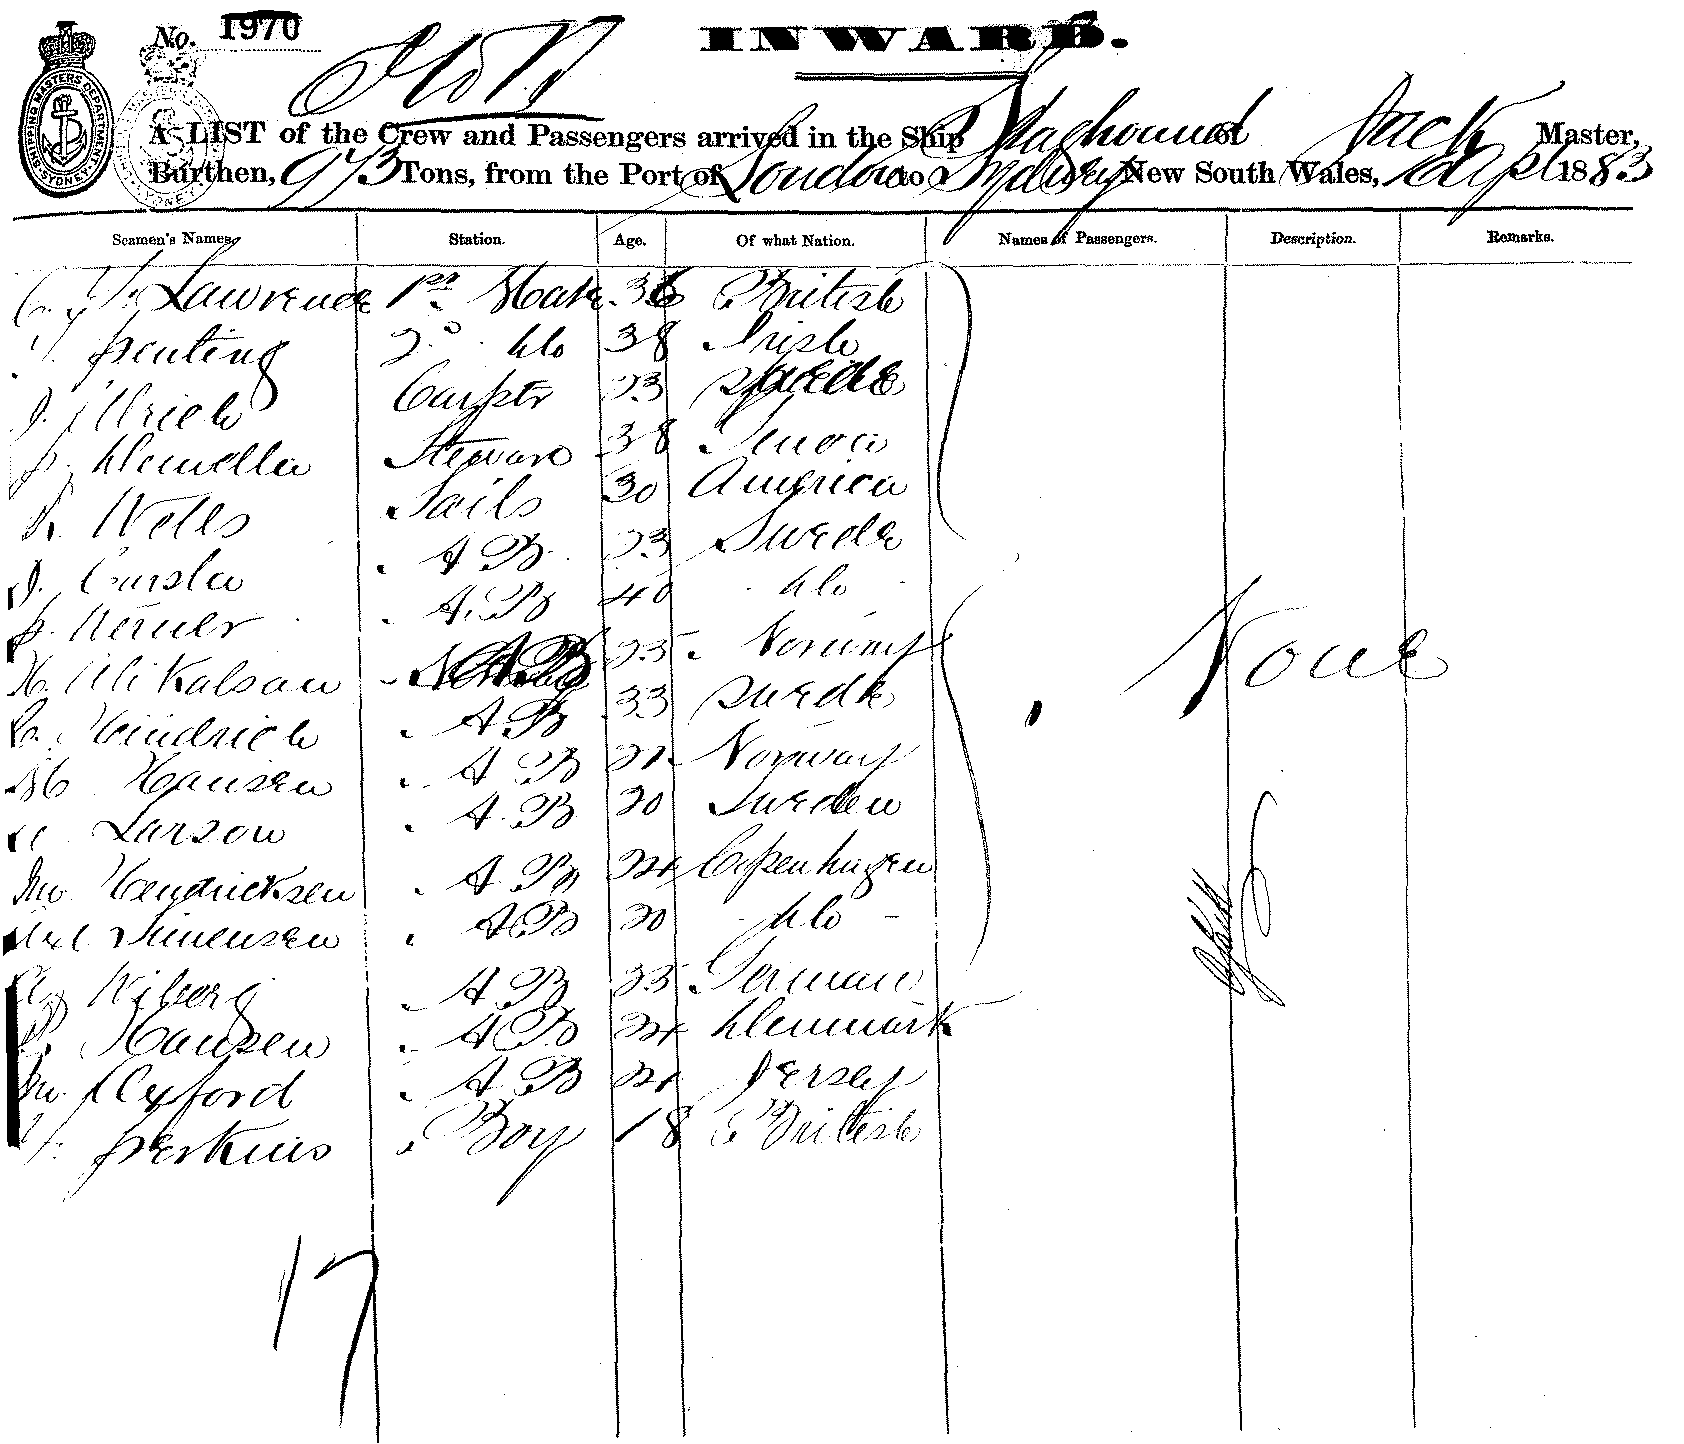 No. 1970
INWARD.
A LIST of the Crew and Passengers arrived in the Ship Staghound of Jack Master,
Burthen, 973 Tons, from the Port of London to Sydney New South Wales, Apl 1883
Seamen's Names. Station. Age. Of what Nation. Names of Passengers. Description. Remarks.
Lawrence 1st Mate 36 British
Penting 2d do 38 Irish
J. Ulrich Carptr 23 Swede
Demella Steward 38 Genoa
Wells Sails 30 America
J. Carsla A B 23 Swede
Werner A. B 40 do
H. Mikalsan A B 25 Norway
C. Hindrich A B 33 Swede
M Hansen A B Norway
Larson A B 20 Sweden
Jno. Hendricksen A B 24 Copenhagen
Axel Simensen A B 20 do
Wiberg A B 25 German
Hansen A B 24 Denmark
Jno. Oxford A B Jersey
Perkins Boy 18 British
None
17